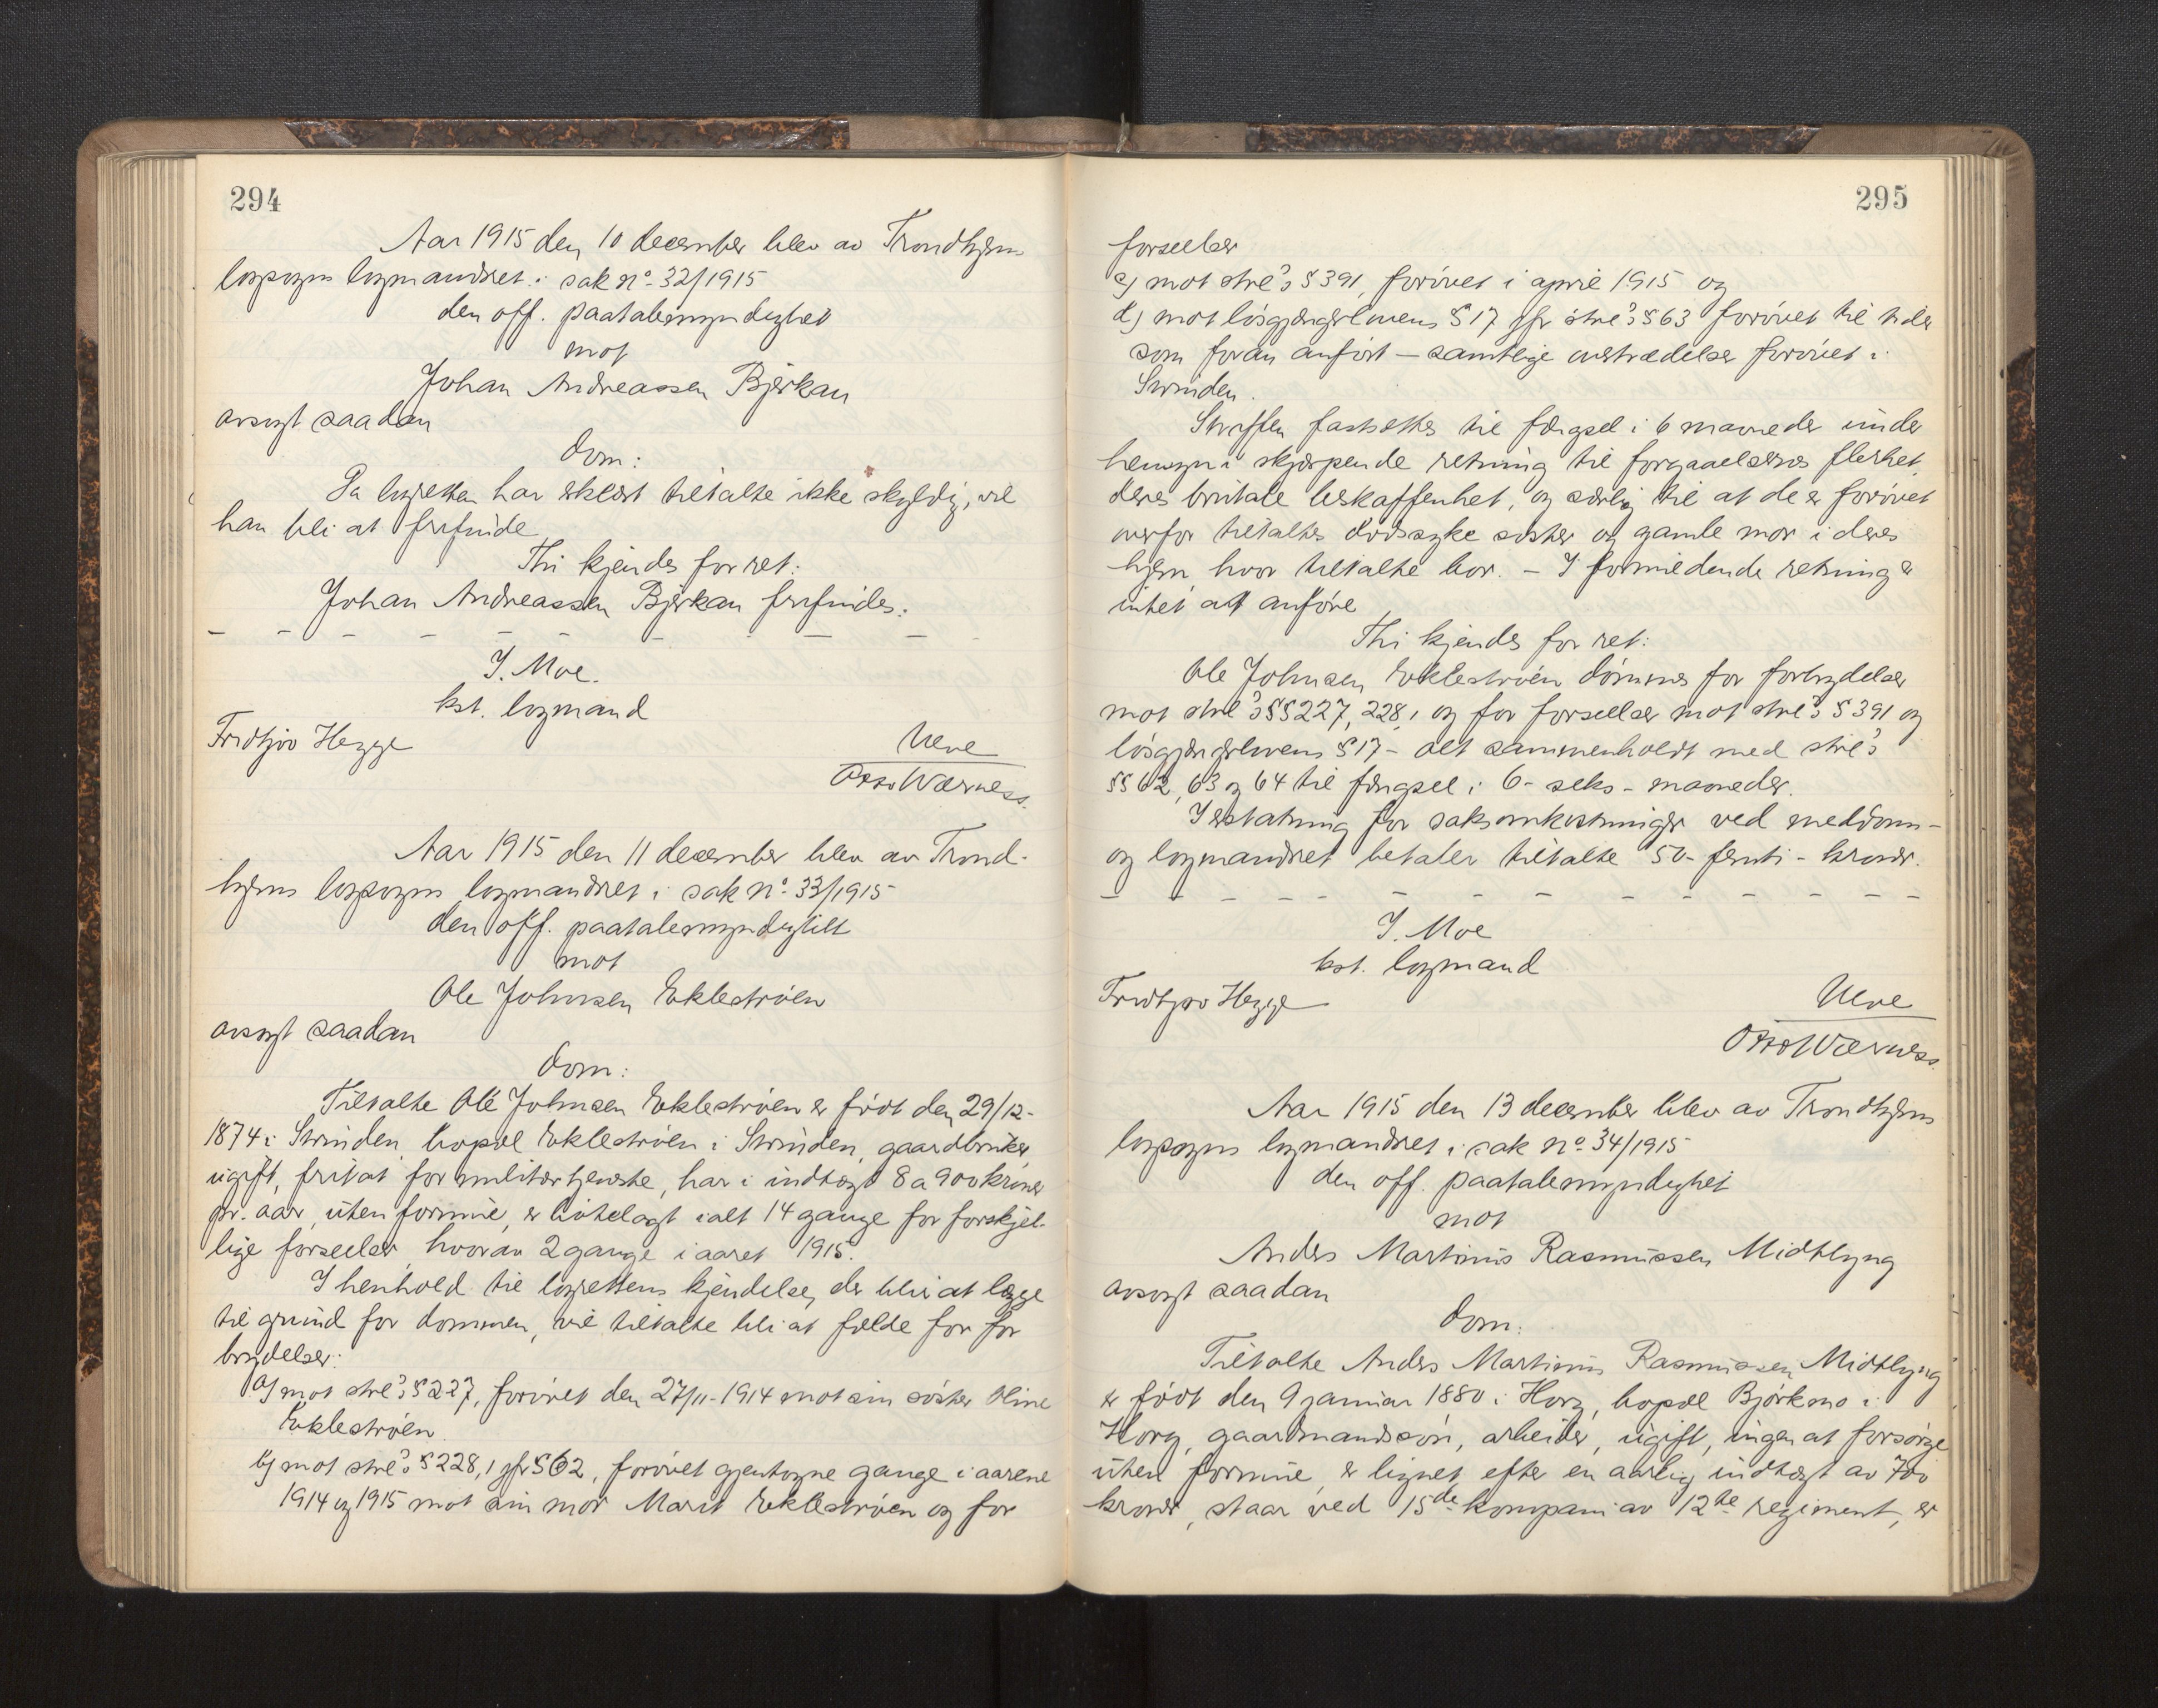 294
Aar 1915 den 10 december blev av Trondhjems
lagsogns lagmandsret i sak No 32/1915
den off. paatalemyndighet
mot
Johan Andreassen Bjerkan
avsagt saadan
dom:
Da lagretten har erklært tiltalte ikke skyldig, vil
han bli at frifinde
Thi kjendes for ret:
Johan Andreassen Bjerkan frifindes.
I. Moe.
kst. lagmand
Fridtjov Hegge
Ulve
Otto Wærness.
Aar 1915 den 11 december blev av Trond-
hjems lagsogns lagmandsret i sak No 33/1915
den off. paatalemyndighet
mot
Ole Johnsen Ekleströen
avsagt saadan
dom:
Tiltalte Ole Johnsen Ekleströen er født den 29/12-
1874 i Strinden, bopæl Ekleströen i Strinden, gaardbruker,
ugift, fritat for militærtjeneste, har i indtægt 8 a 900 kroner
pr. aar, uten formue, er bøtelagt ialt 14 gange for forskjel-
lige forseelser, hvorav 2 gange i aaret 1915.
I henhold til lagrettens kjendelse, der blir at lægge
til grund for dommen, vil tiltalte bli at fælde for for
brydelser:
a) mot strl's § 227, forövet den 27/11-1914 mot sin söster Oline
Ekleströen
b) mot strl's § 228,1 jfr § 62, forövet gjentagne gange i aarene
1914 og 1915 mot sin mor Marit Ekleströen og for
295
forseelser
c) mot strl's § 391, forövet i april 1915 og
d) mot lösgjængerlovens § 17 jfr strl's § 63 forövet til tider
som foran anfört – samtlige overtrædelser forövet i
Strinden.
Straffen fastsættes til fængsel i 6 maaneder under
hensyn i skjærpende retning til forgaaelsernes flerhet,
deres brutale beskaffenhet, og særlig til at de er forövet
overfor tiltaltes dødssyke söster og gamle mor i deres
hjem, hvor tiltalte bor. – I formildende retning er
intet at anföre
Thi kjendes for ret:
Ole Johnsen Ekleströen dömmes for forbrydelser
mot strl's §§ 227, 228,1 og for forseelser mot strl's § 391 og
lösgjængerlovens § 17 – alt sammenholdt med strl's
§§ 62, 63 og 64 til fængsel i 6 – seks – maaneder.
I erstatning for saksomkostninger ved meddoms-
og lagmandsret betaler tiltalte 50 – femti – kroner.
I. Moe
kst. lagmand
Fridtjov Hegge
Ulve
Otto Wærness.
Aar 1915 den 13 december blev av Trondhjems
lagsogns lagmandsret i sak No 34/1915
den off. paatalemyndighet
mot
Anders Martinus Rasmussen Midtlyng
avsagt saadan
dom:
Tiltalte Anders Martinus Rasmussen Midtlyng
er född den 9 januar 1880 i Horg, bopæl Björkmo i
Horg, gaardmandssön, arbeider, ugift, ingen at forsörge
uten formue, er lignet efter en aarlig indtægt av 700
kroner, staar ved 15de kompani av 12te regiment, er